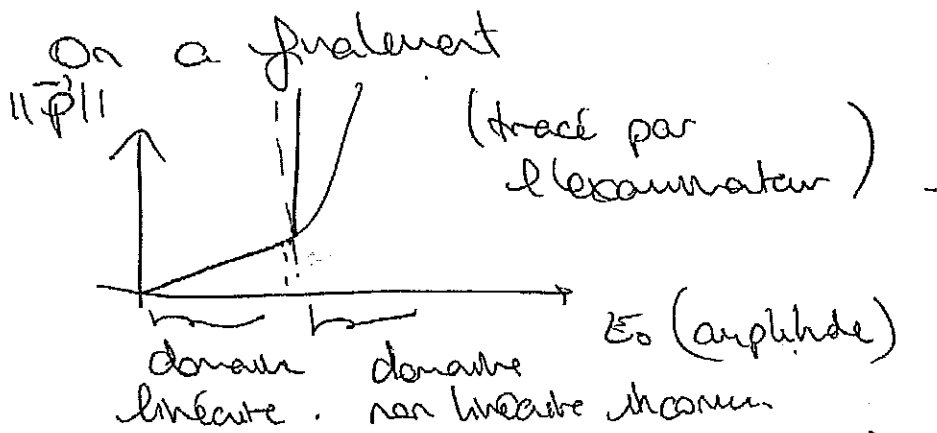 On a finalement
||p⃗||
(tracé par
l'examinateur)
E₀ (amplitude)
domaine domaine
linéaire. non linéaire inconnu.